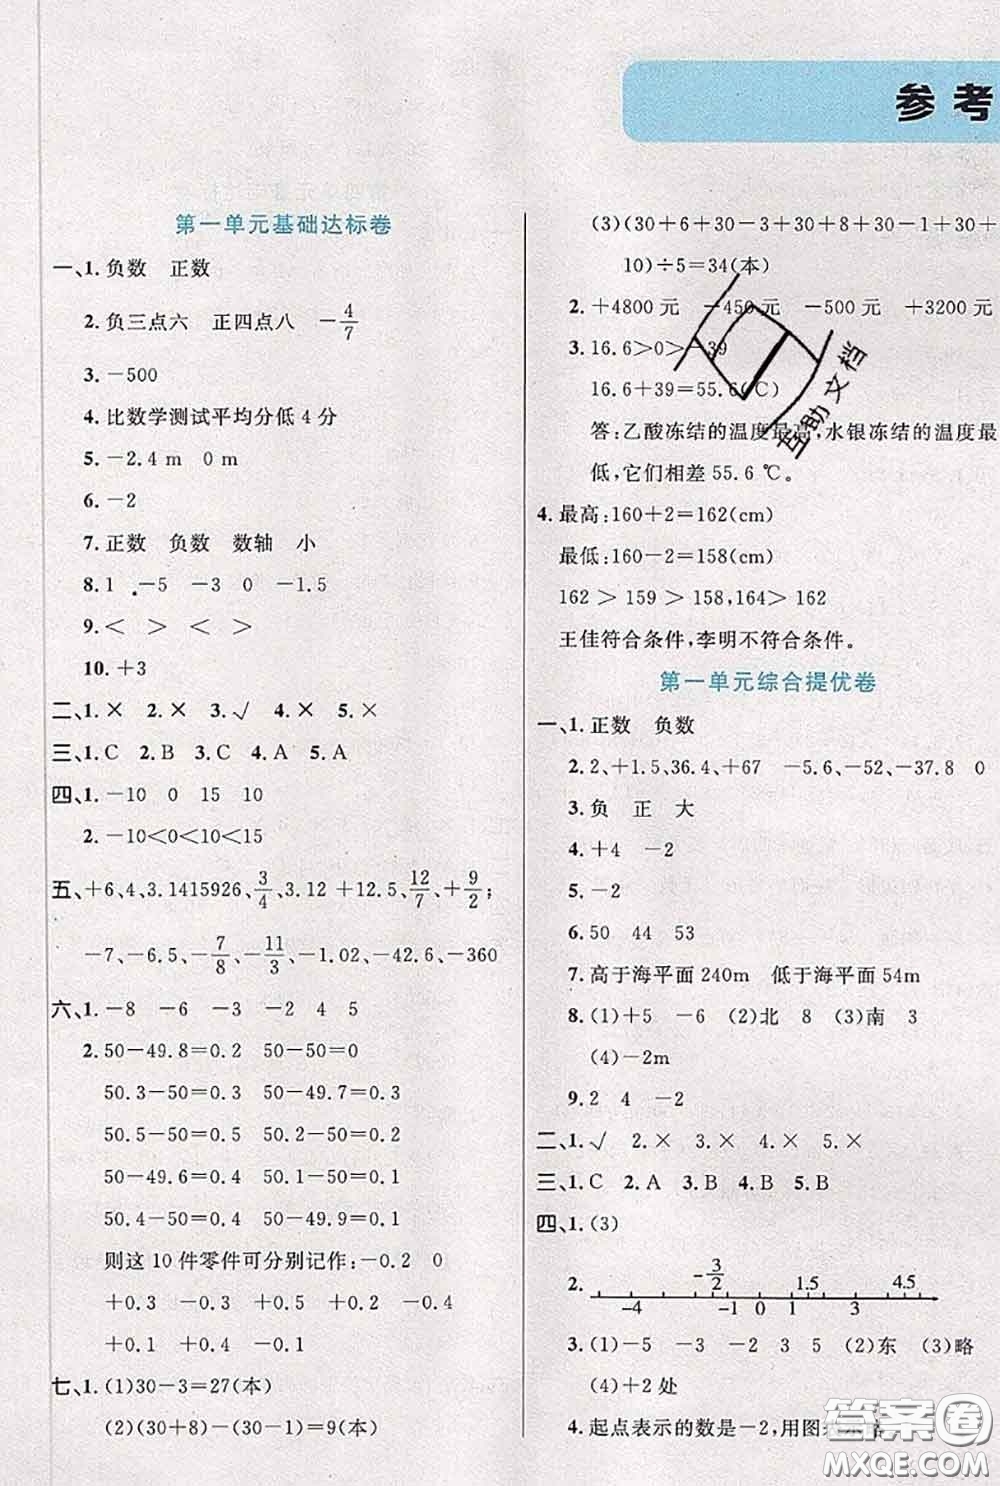 参考
第一单元基础达标卷
一、1.负数 正数
2.负三点六 正四点八 －4/7
3.－500
4.比数学测试平均分低4分
5.－2.4 m 0 m
6.－2
7.正数 负数 数轴 小
8.1 －5 －3 0 －1.5
9.＜ ＞ ＜ ＞
10.＋3
二、1.× 2.× 3.√ 4.× 5.×
三、1.C 2.B 3.C 4.A 5.A
四、1.－10 0 15 10
2.－10＜0＜10＜15
五、＋6、4、3.1415926、3/4、3.12 ＋12.5、12/7、＋9/2；
－7、－6.5、－7/8、－11/3、－1.02、－42、－360
六、1.－8 －6 －3 －2 4 5
2.50－49.8＝0.2 50－50＝0
50.3－50＝0.3 50－49.7＝0.3
50.5－50＝0.5 50.2－50＝0.2
50－49.6＝0.4 50.1－50＝0.1
50.4－50＝0.4 50－49.9＝0.1
则这10件零件可分别记作：－0.2 0
＋0.3 －0.3 ＋0.5 ＋0.2 －0.4
＋0.1 ＋0.4 －0.1
七、1.(1)30－3＝27(本)
(2)(30＋8)－(30－1)＝9(本)
(3)(30＋6＋30－3＋30＋8＋30－1＋30＋
10)÷5＝34(本)
2.＋4800元 －450元 －500元 ＋3200元
3.16.6＞0＞－39
16.6＋39＝55.6(℃)
答：乙酸冻结的温度最高，水银冻结的温度最
低，它们相差55.6 ℃。
4.最高：160＋2＝162(cm)
最低：160－2＝158(cm)
162 ＞ 159 ＞ 158，164＞ 162
王佳符合条件，李明不符合条件。
第一单元综合提优卷
一、1.正数 负数
2.2、＋1.5、36.4、＋67 －5.6、－52、－37.8 0
3.负 正 大
4.＋4 －2
5.－2
6.50 44 53
7.高于海平面240m 低于海平面54m
8.(1)＋5 －6 (2)北 8 (3)南 3
(4)－2m
9.2 4 －2
二、1.√ 2.× 3.× 4.× 5.×
三、1.C 2.A 3.B 4.B 5.B
四、1.(3)
2. －3/2 1.5 4.5
－4 －1 0 1 3
3.(1)－5 －3 －2 3 5 (2)东 (3)略
(4)＋2处
4.起点表示的数是－2，用图表示略
互助文档
答案圈
MXQE.COM